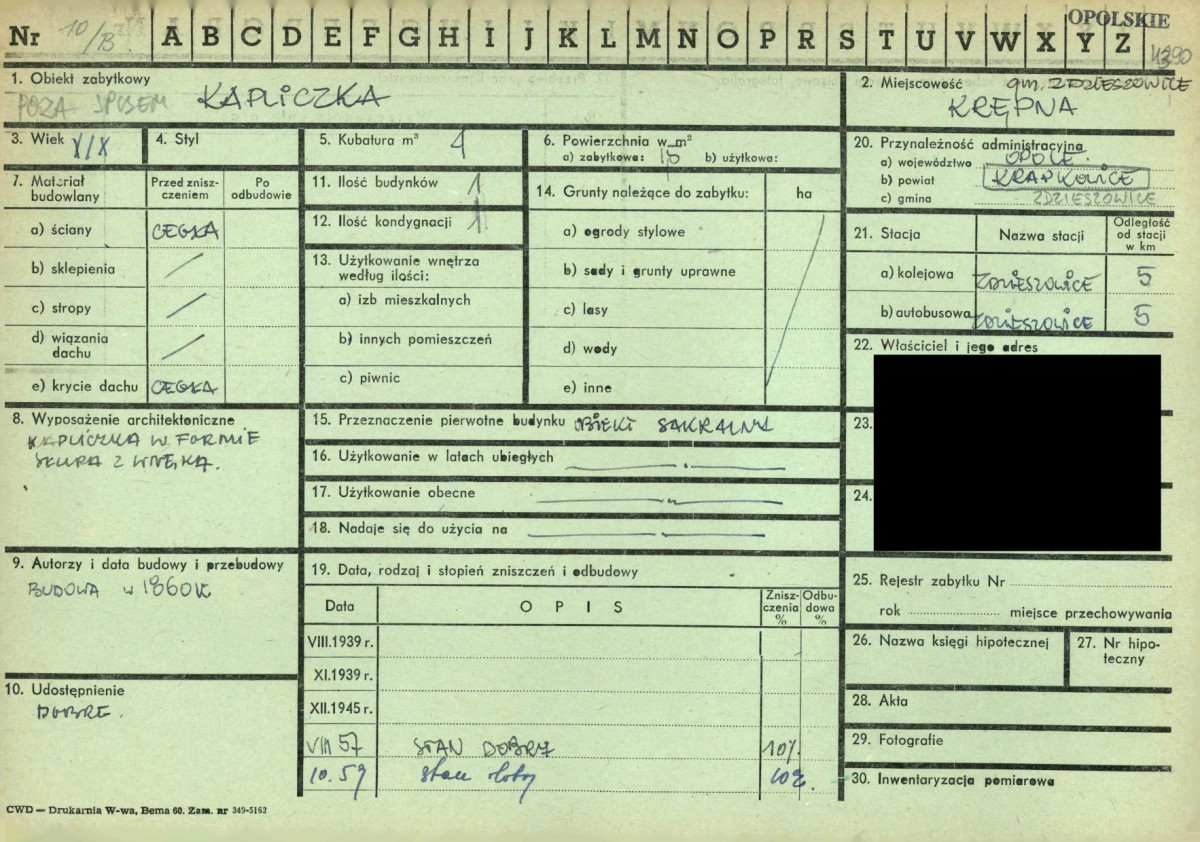 OPOLSKIE
Nr 10/B. A B C D E F G H I J K L M N O P R S T U V W X Y Z
4390
1. Obiekt zabytkowy
POZA SPISEM KAPLICZKA
2. Miejscowość gm. ZDZIESZOWICE
KRĘPNA
3. Wiek XIX
4. Styl
5. Kubatura m³ 1
6. Powierzchnia w m²
a) zabytkowa: b) użytkowa:
7. Materiał budowlany
Przed zniszczeniem
Po odbudowie
a) ściany CEGŁA
b) sklepienia /
c) stropy /
d) wiązania dachu /
e) krycie dachu CEGŁA
11. Ilość budynków 1
12. Ilość kondygnacji
13. Użytkowanie wnętrza według ilości:
a) izb mieszkalnych
b) innych pomieszczeń
c) piwnic
14. Grunty należące do zabytku:
ha
a) ogrody stylowe
b) sady i grunty uprawne
c) lasy
d) wody
e) inne
20. Przynależność administracyjna
a) województwo OPOLE.
b) powiat KRAPKOWICE
c) gmina ZDZIESZOWICE
21. Stacja
Nazwa stacji
Odległość od stacji w km
a) kolejowa ZDZIESZOWICE 5
b) autobusowa ZDZIESZOWICE 5
22. Właściciel i jego adres
23.
24.
8. Wyposażenie architektoniczne
KAPLICZKA W FORMIE
SŁUPA Z WNĘKĄ.
15. Przeznaczenie pierwotne budynku OBIEKT SAKRALNY
16. Użytkowanie w latach ubiegłych
17. Użytkowanie obecne
18. Nadaje się do użycia na
9. Autorzy i data budowy i przebudowy
BUDOWA w 1860R
10. Udostępnienie
DOBRE.
19. Data, rodzaj i stopień zniszczeń i odbudowy
Data
OPIS
Zniszczenia %
Odbudowa %
VIII.1939 r.
XI.1939 r.
XII.1945 r.
VIII 57 STAN DOBRY 10%
10.59 stan dobry 10%.
25. Rejestr zabytku Nr
rok miejsce przechowywania
26. Nazwa księgi hipotecznej
27. Nr hipoteczny
28. Akta
29. Fotografie
30. Inwentaryzacja pomiarowa
CWD — Drukarnia W-wa, Bema 60. Zam. nr 349-5162